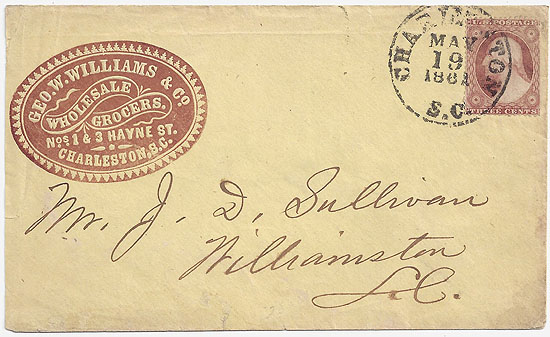 GEO. W. WILLIAMS & Co
WHOLESALE
GROCERS.
Nos 1 & 3 HAYNE ST.
CHARLESTON, S.C.
CHARLESTON
MAY
19
1861
S.C.
U.S. POSTAGE
THREE CENTS
Mr. J. D. Sullivan
Williamston
S.C.